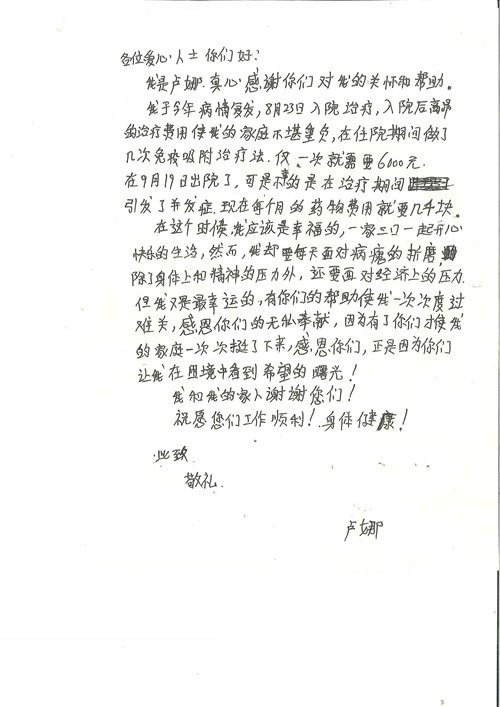 各位爱心人士你们好：
我是卢娜。真心感谢你们对我的关怀和帮助。
我于今年病情复发，8月23日入院治疗，入院后高昂
的治疗费用使我的家庭不堪重负，在住院期间做了
几次免疫吸附治疗法。仅一次就需要6000元.
在9月19日出院了，可是不幸的是在治疗期间
引发了并发症.现在每个月的药物费用就要几千块。
在这个时候，我应该是幸福的，一家三口一起开心
快乐的生活，然而，我却要每天面对病魔的折磨，
除了身体上和精神的压力外，还要面对经济上的压力.
但我又是最幸运的，有你们的帮助使我一次次度过
难关，感恩你们的无私奉献，因为有了你们才使我
的家庭一次次挺了下来，感恩你们，正是因为你们
让我在困境中看到希望的曙光！
我和我的家人谢谢您们！
祝愿您们工作顺利！身体健康！
此致
敬礼.
卢娜